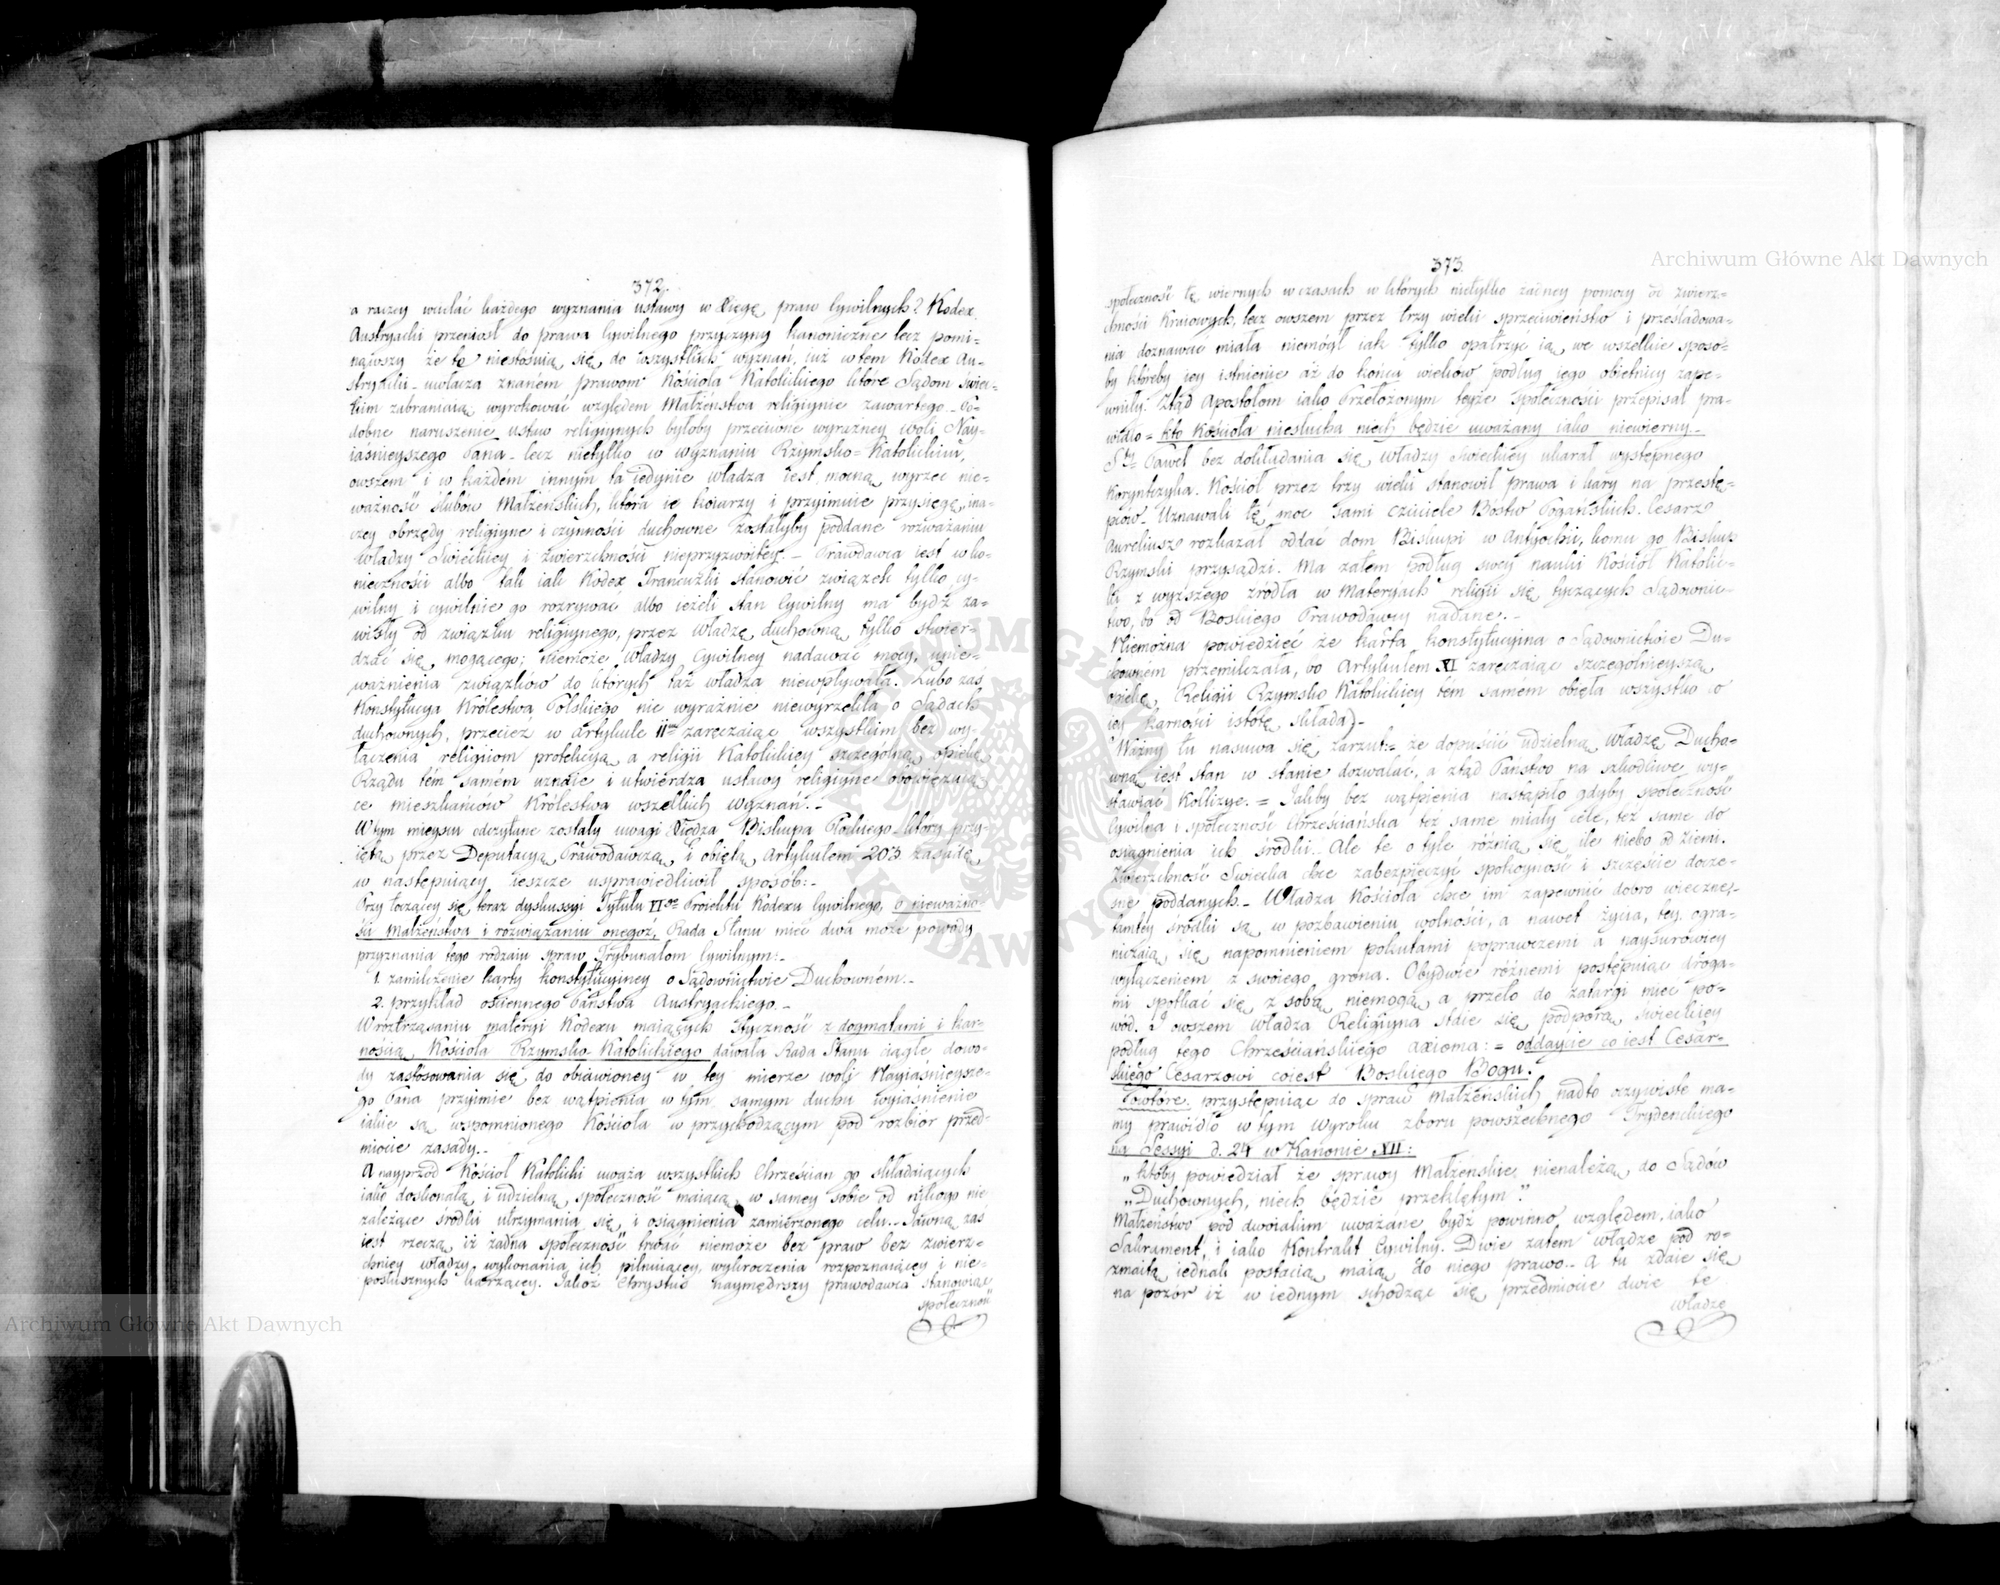 372.
a raczey wcielać każdego wyznania ustawy w Xięgę praw Cywilnych? Kodex
Austryacki przeniosł do prawa Cywilnego przyczyny kanoniczne lecz pomi-
nąwszy że te niestosuią się do wszystkich wyznań, iuż w tem Kodex Au-
stryacki uwłacza znaném prawom Kościoła Katolickiego które Sądom świec-
kim zabraniaią wyrokować względem Małżeństwa religiynie zawartego. Po-
dobne naruszenie ustaw religiynych byłoby przeciwne wyrazney woli Nay-
iaśnieyszego Pana lecz nietylko w wyznaniu Rzymsko-Katolickim,
owszem i w każdém innym ta iedynie władza iest mocną wyrzec nie-
ważność ślubów Małżeńskich, która ie koiarzy i przyimuie przysięgę, ina-
czey obrzędy religiyne i czynności duchowne zostałyby poddane rozważaniu
władzy Swieckiey i zwierzchności nieprzyzwoitey. Prawodawca iest w ko-
nieczności albo tak iak Kodex Francuzki stanowić związek tylko cy-
wilny i cywilnie go rozrywać albo ieżeli stan Cywilny ma bydź za-
wisły od związku religiynego, przez władzę duchowną tylko stwier-
dzać się mogącego; niemoże władzy Cywilney nadawać mocy unie-
ważnienia związków do których taż władza niewpływała. Lubo zaś
Konstytucya Królestwa Polskiego nic wyraźnie niewyrzekła o Sądach
duchownych, przecież w Artykule 11ym zaręczaiąc wszystkim bez wy-
łączenia religiiom protekcyą, a religii Katolickiey szczególną opiekę
Rządu tém samém uznaie i utwierdza ustawy religiyne obowięzuią-
ce mieszkańców Królestwa wszelkich wyznań.
W tym mieyscu odczytane zostały uwagi Xiędza Biskupa Płockiego który przy-
iętą przez Deputacyą Prawodawczą i obiętą Artykułem 203 zasadę
w następuiący ieszcze usprawiedliwił sposób:
Przy toczącey się teraz dyskussyi Tytułu VIgo Proiektu Kodexu Cywilnego, o nieważno-
ści Małżeństwa i rozwiązaniu onegoż, Rada Stanu mieć dwa może powody
przyznania tego rodzaiu spraw Trybunałom Cywilnym:
1. zamilczenie karty Konstytucyiney o Sądownictwie Duchowném.
2. przykład ościennego Państwa Austryackiego.
W roztrząsaniu materyi Kodexu maiących styczność z dogmatami i kar-
nością Kościoła Rzymsko-Katolickiego dawała Rada Stanu ciągłe dowo-
dy zastosowania się do obiawioney w tey mierze woli Nayiaśnieysze-
go Pana przyimie bez wątpienia w tym samym duchu wyiaśnienie
iakie są wspomnionego Kościoła w przychodzącym pod rozbiór przed-
miocie zasady.
A nayprzód Kościoł Katolicki uważa wszystkich Chrześcian go składaiących
iako doskonałą i udzielną społeczność maiącą w samey sobie od nikogo nie
zależące środki utrzymania się i osiągnienia zamierzonego celu. Jawną zaś
iest rzeczą iż żadna społeczność trwać niemoże bez praw bez zwierz-
chniey władzy wykonania ich pilnuiącey, wykroczenia rozpoznaiącey i nie-
posłusznych karzącey. Jakoż Chrystus naymędrszy prawodawca stanowiąc
społeczność
373.
społeczność tę wiernych w czasach w których nietylko żadney pomocy od zwierz-
chności Kraiowych, lecz owszem przez trzy wieki sprzeciwieństw i prześladowa-
nia doznawać miała niemógł iak tylko opatrzyć ią we wszelkie sposo-
by któreby iey istnienie aż do końca wieków podług iego obietnicy zape-
wniły. Ztąd Apostołom iako Przełożonym teyże Społeczności przepisał pra-
widło = kto Kościoła niesłucha niech będzie uważany iako niewierny.
Sty Paweł bez dokładania się władzy Swieckiey ukarał występnego
Koryntczyka. Kościoł przez trzy wieki stanowił prawa i kary na przestę-
pców. Uznawali tę moc sami czciciele Bóstw Pogańskich. Cesarz
Aureliusz rozkazał oddać dom Biskupi w Antyochii, komu go Biskup
Rzymski przysądzi. Ma zatem podług swey nauki Kościoł Katolic-
ki z wyższego źródła w Materyach religii się tyczących Sądownic-
two, bo od Boskiego Prawodawcy nadane.
Niemożna powiedzieć że Karta Konstytucyina o Sądownictwie Du-
chowném przemilczała, bo Artykułem XI zaręczaiąc szczególnieyszą
opiekę Religii Rzymsko Katolickiey tém samém obięła wszystko co
iey karności istotę składa.
Ważny tu nasuwa się zarzut: = że dopuścić udzielną władzę Ducho-
wną iest stan w stanie dozwalać, a ztąd Państwo na szkodliwe wy-
stawiać Kollizye. = Jakby bez wątpienia nastąpiło gdyby społeczność
Cywilna i społeczność Chrześciańska też same miały cele, też same do
osiągnienia ich środki. Ale te o tyle różnią się ile niebo od Ziemi.
Zwierzchność Swiecka chce zabezpieczyć spokoyność i szczęście docze-
sne poddanych. Władza Kościoła chce im zapewnić dobro wieczne;
tamtey środki są w pozbawieniu wolności, a nawet życia, tey ogra-
niczaią się napomnieniem pokutami poprawczemi a naysurowiey
wyłączeniem z swoiego grona. Obydwie różnemi postępuiąc droga-
mi spotkać się z sobą niemogą a przeto do zatargi mieć po-
wód. I owszem władza Religiyna staie się podporą swieckiey
podług tego Chrześciańskiego axioma: = oddaycie co iest Cesar-
skiego Cesarzowi co iest Boskiego Bogu.
Powtóre. przystępuiąc do spraw Małżeńskich nadto oczywiste ma-
my prawidło w tym wyroku zboru powszechnego Trydenckiego
na Sessyi d. 24 w Kanonie XII:
„ktoby powiedział że sprawy Małżeńskie nienależą do Sądów
„Duchownych, niech będzie przeklętym."
Małżeństwo pod dwoiakim uważane bydź powinno względem, iako
Sakrament, i iako Kontrakt Cywilny. Dwie zatem władze pod ro-
zmaitą iednak postacią maią do niego prawo. A tu zdaie się
na pozór iż w iednym schodząc się przedmiocie dwie te
władze
Archiwum Główne Akt Dawnych
Archiwum Główne Akt Dawnych